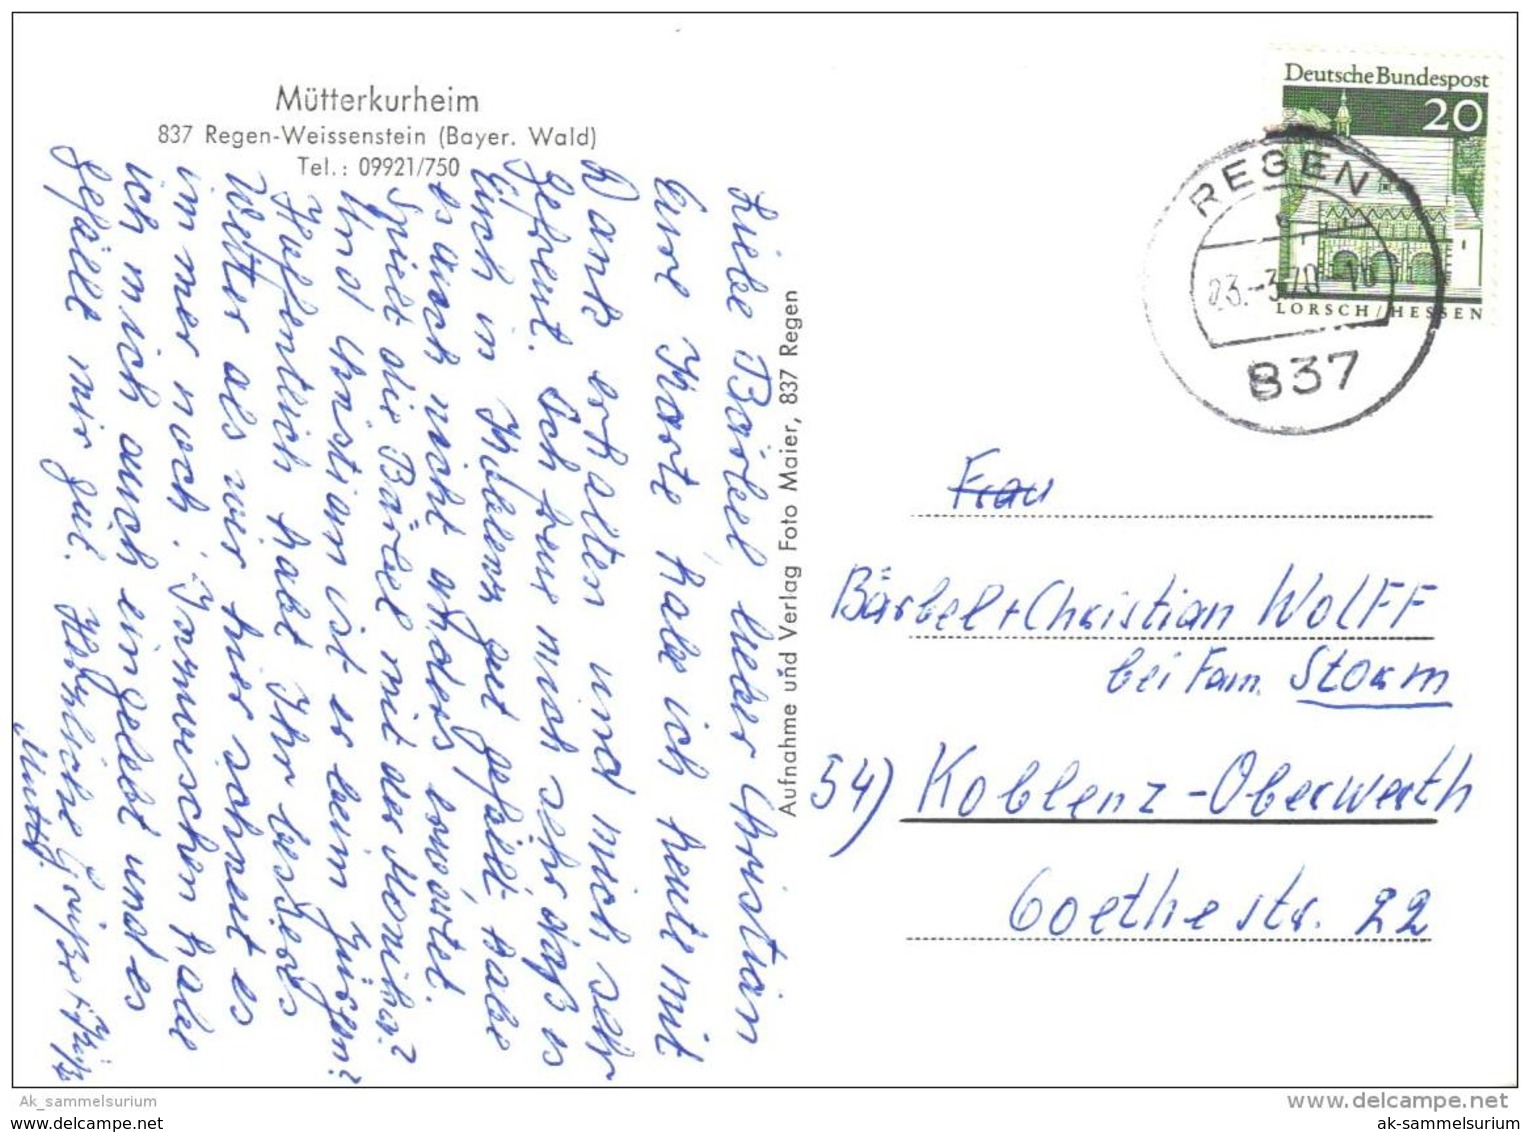 Mütterkurheim
837 Regen-Weissenstein (Bayer. Wald)
Tel.: 09921/750
Liebe Bärbel lieber Christian
Eure Karte habe ich heute mit
Dank erhalten und mich sehr
gefreut. Ich freue mich sehr daß es
Euch in Koblenz gut gefällt habe
es auch nicht anders erwartet.
Spielt die Bärbel mit der Monika?
Und Christian ist er beim Jürgen?
Hoffentlich habt Ihr besseres
Wetter als wir hier schneit es
immer noch! Inzwischen habe
ich mich auch eingelebt und es
gefällt mir gut. Herzliche Grüße + Küße
Mutti
Aufnahme und Verlag Foto Maier, 837 Regen
Deutsche Bundespost
20
LORSCH/HESSEN
REGEN
23.-3.70-16
837
Frau
Bärbel + Christian Wolff
bei Fam. Storm
54) Koblenz-Oberwerth
Goethestr. 22
Ak_sammelsurium
www.delcampe.net
ak-sammelsurium
www.delcampe.net
ak-sammelsurium